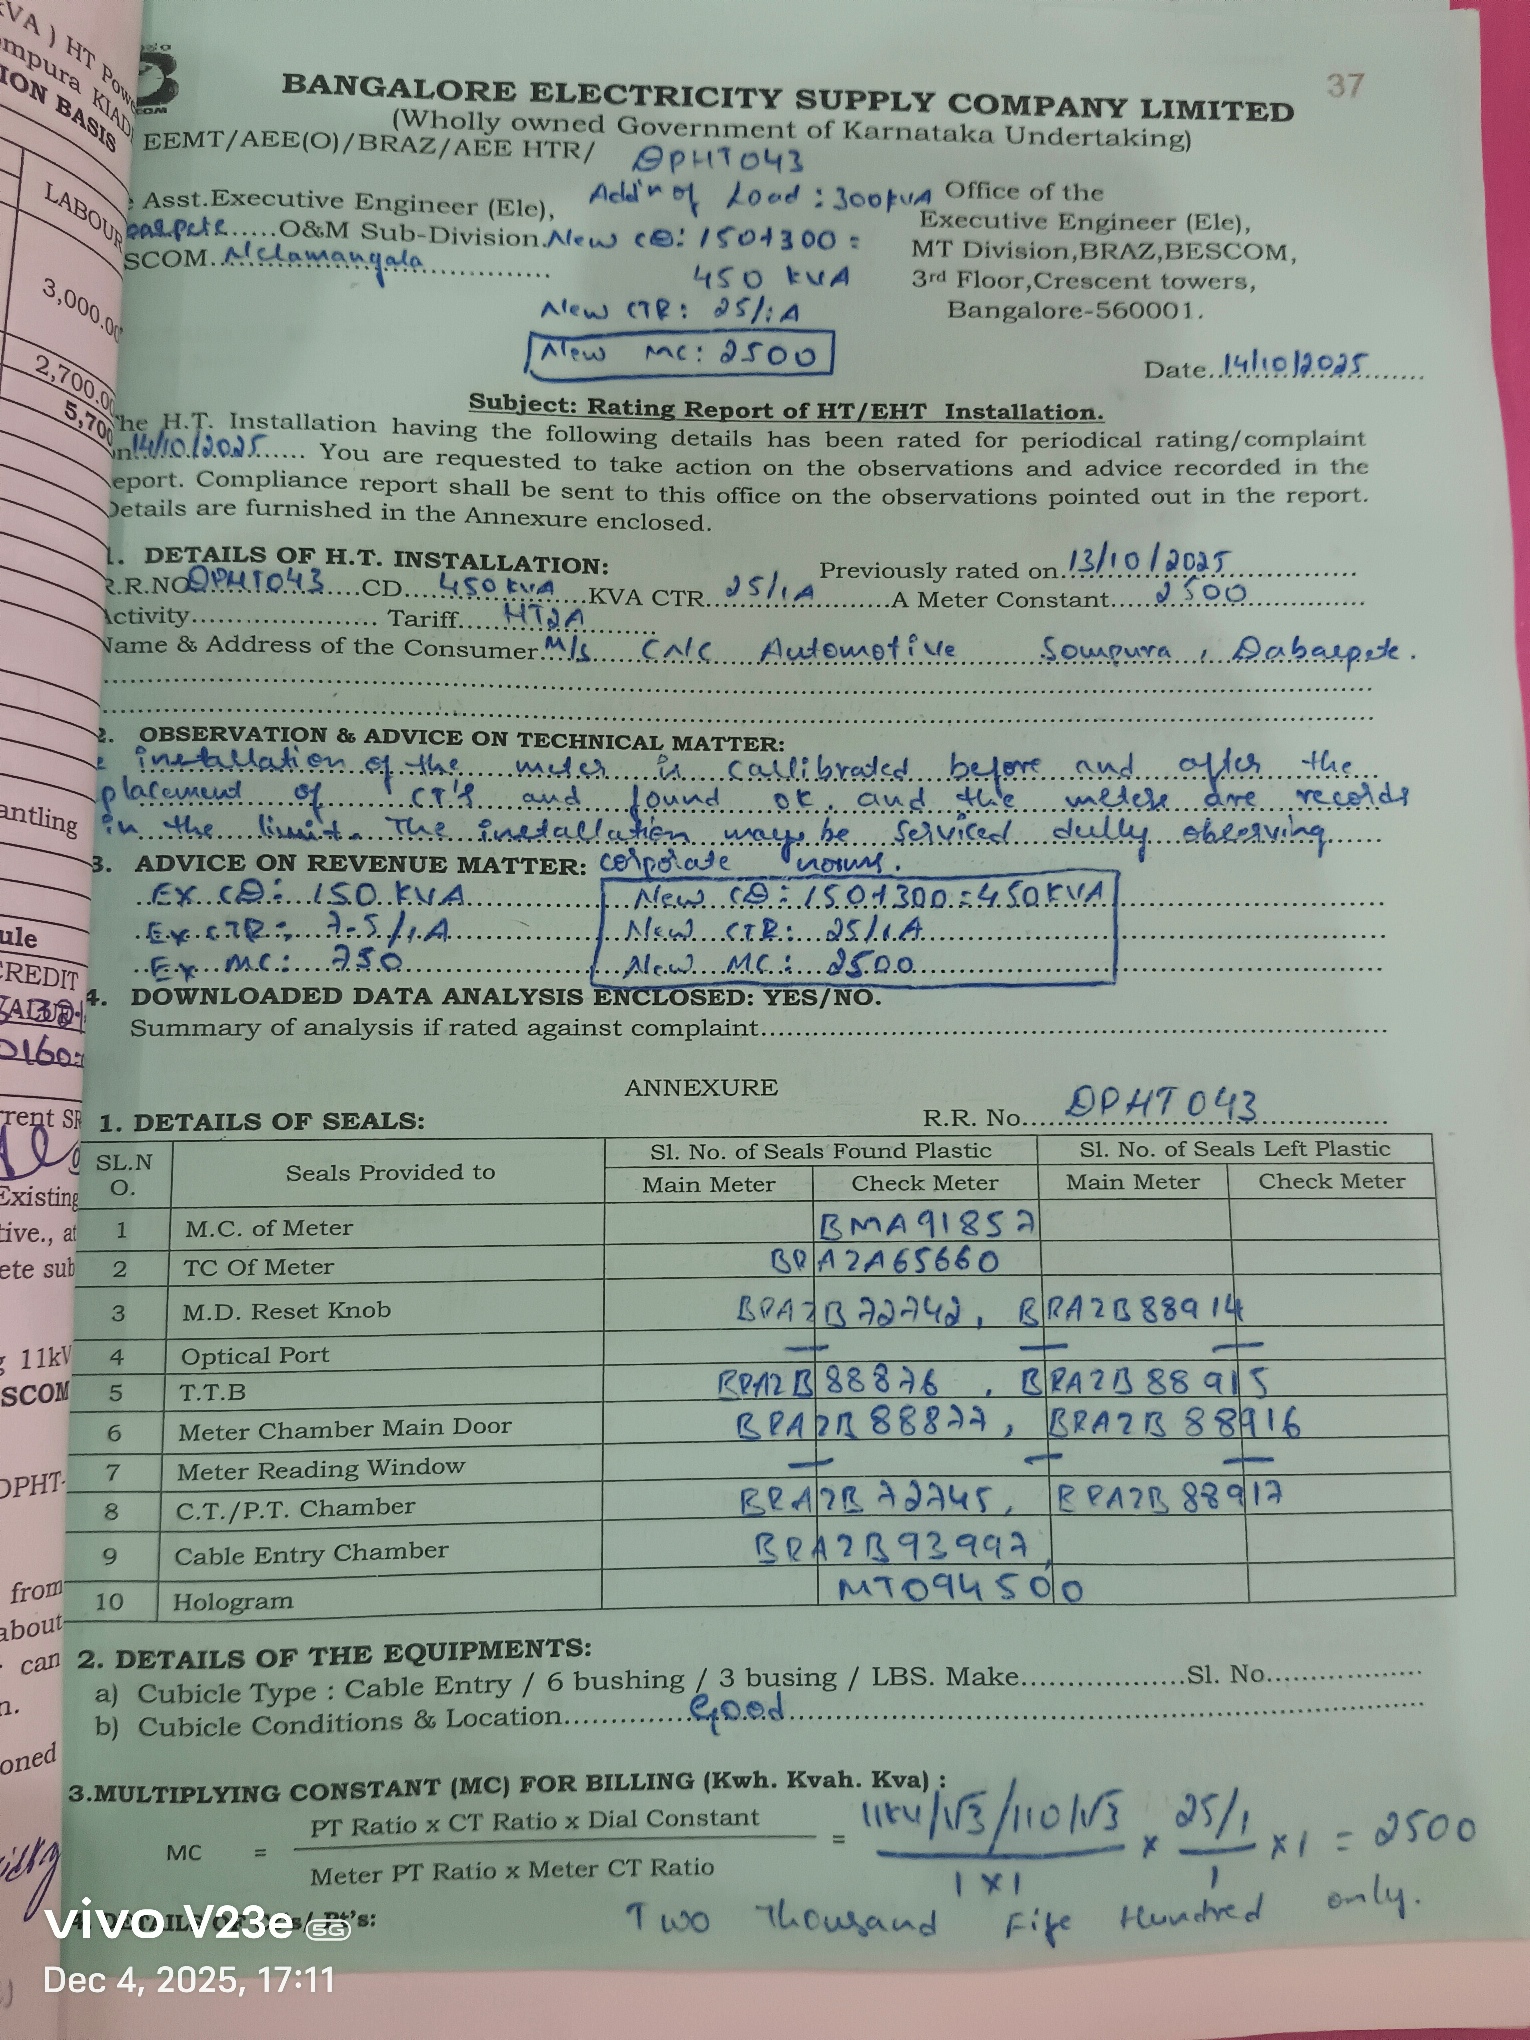 37
BANGALORE ELECTRICITY SUPPLY COMPANY LIMITED
(Wholly owned Government of Karnataka Undertaking)
EEMT/AEE(O)/BRAZ/AEE HTR/ DPHT043
Asst.Executive Engineer (Ele),
Addn of Load : 300kVA
Office of the
Executive Engineer (Ele),
O&M Sub-Division New CD: 150+300 =
MT Division,BRAZ,BESCOM,
SCOM. Nelamangala
450 kVA
3rd Floor,Crescent towers,
New CTR: 25/1A
Bangalore-560001.
New MC: 2500
Date..14/10/2025
Subject: Rating Report of HT/EHT Installation.
he H.T. Installation having the following details has been rated for periodical rating/complaint
n 14/10/2025...... You are requested to take action on the observations and advice recorded in the
eport. Compliance report shall be sent to this office on the observations pointed out in the report.
Details are furnished in the Annexure enclosed.
1. DETAILS OF H.T. INSTALLATION:
Previously rated on 13/10/2025
R.R.NO DPHT043 CD 450 kVA KVA CTR 25/1A A Meter Constant 2500
Activity.................... Tariff HT2A
Name & Address of the Consumer M/s CNC Automotive Sompura, Dabaspete.
2. OBSERVATION & ADVICE ON TECHNICAL MATTER:
e installation of the meter is callibrated before and after the
placement of CT's and found ok. and the meters are records
in the limit. The installation may be serviced dully observing
3. ADVICE ON REVENUE MATTER: corporate norms.
Ex CD: 150 KVA New CD: 150+300=450KVA
Ex CTR: 7.5/1A New CTR: 25/1A
Ex MC: 750 New MC: 2500
4. DOWNLOADED DATA ANALYSIS ENCLOSED: YES/NO.
Summary of analysis if rated against complaint
ANNEXURE
1. DETAILS OF SEALS:
R.R. No. DPHT043
SL.N
O.
Seals Provided to
Sl. No. of Seals Found Plastic
Sl. No. of Seals Left Plastic
Main Meter Check Meter Main Meter Check Meter
1 M.C. of Meter BMA91857
2 TC Of Meter BRA2A65660
3 M.D. Reset Knob BRA2B72742, BRA2B88914
4 Optical Port — — —
5 T.T.B BRA2B88876, BRA2B88915
6 Meter Chamber Main Door BRA2B88877, BRA2B88916
7 Meter Reading Window — — —
8 C.T./P.T. Chamber BRA2B72745, BRA2B88917
9 Cable Entry Chamber BRA2B93997,
10 Hologram MT094500
2. DETAILS OF THE EQUIPMENTS:
a) Cubicle Type : Cable Entry / 6 bushing / 3 busing / LBS. Make..................Sl. No.................
b) Cubicle Conditions & Location............Good
3.MULTIPLYING CONSTANT (MC) FOR BILLING (Kwh. Kvah. Kva) :
PT Ratio x CT Ratio x Dial Constant
MC = = 11kV/√3/110/√3 × 25/1 × 1 = 2500
Meter PT Ratio x Meter CT Ratio
1 x 1 1
Two Thousand Five Hundred only.
vivo V23e 5G
Dec 4, 2025, 17:11
VA ) HT Powe
ompura KIAD
ION BASIS
LABOUR
3,000.00
2,700.00
5,700
antling
ule
CREDIT
rrent SR
Existing
tive., at
ete sub
11kV
SCOM
DPHT-
from
about
can
n.
oned